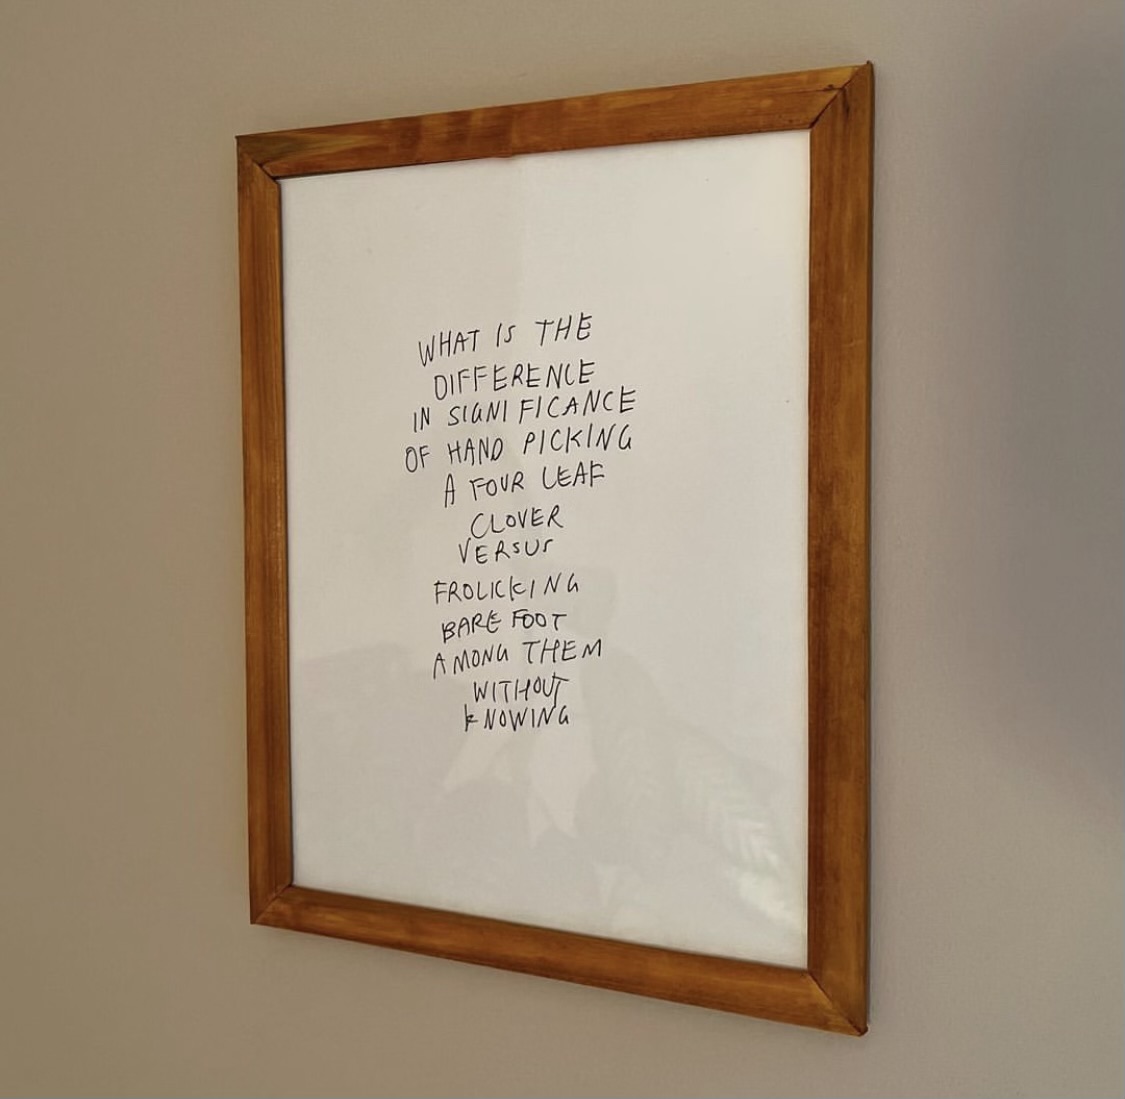 WHAT IS THE
DIFFERENCE
IN SIGNIFICANCE
OF HAND PICKING
A FOUR LEAF
CLOVER
VERSUS
FROLICKING
BARE FOOT
AMONG THEM
WITHOUT
KNOWING